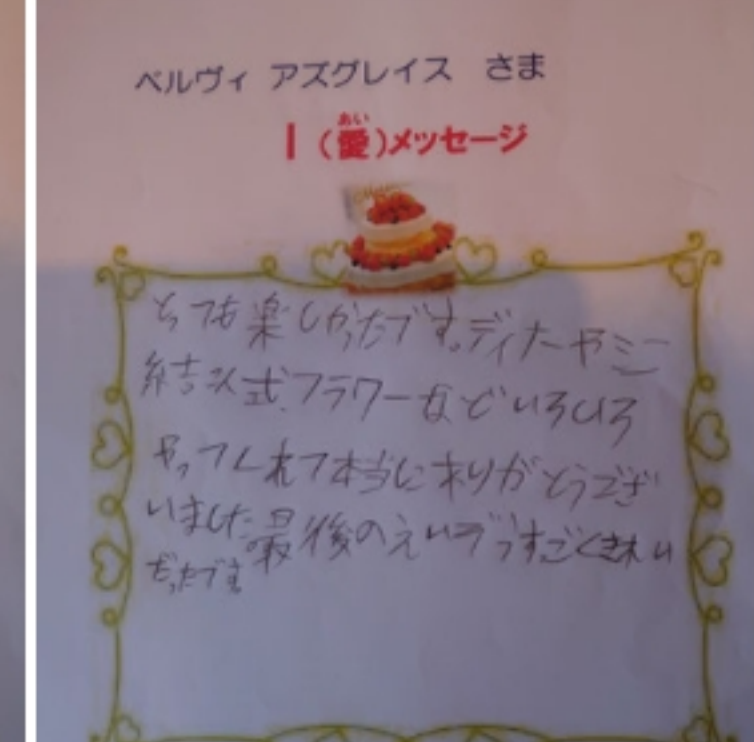 ベルヴィ アズグレイス さま
あい
I(愛)メッセージ
とても楽しかったです。ディナーやミニ
結式、フラワーなどいろいろ
やってくれて本当にありがとうござ
いました。最後のえいぞうすごくきれい
だったです。